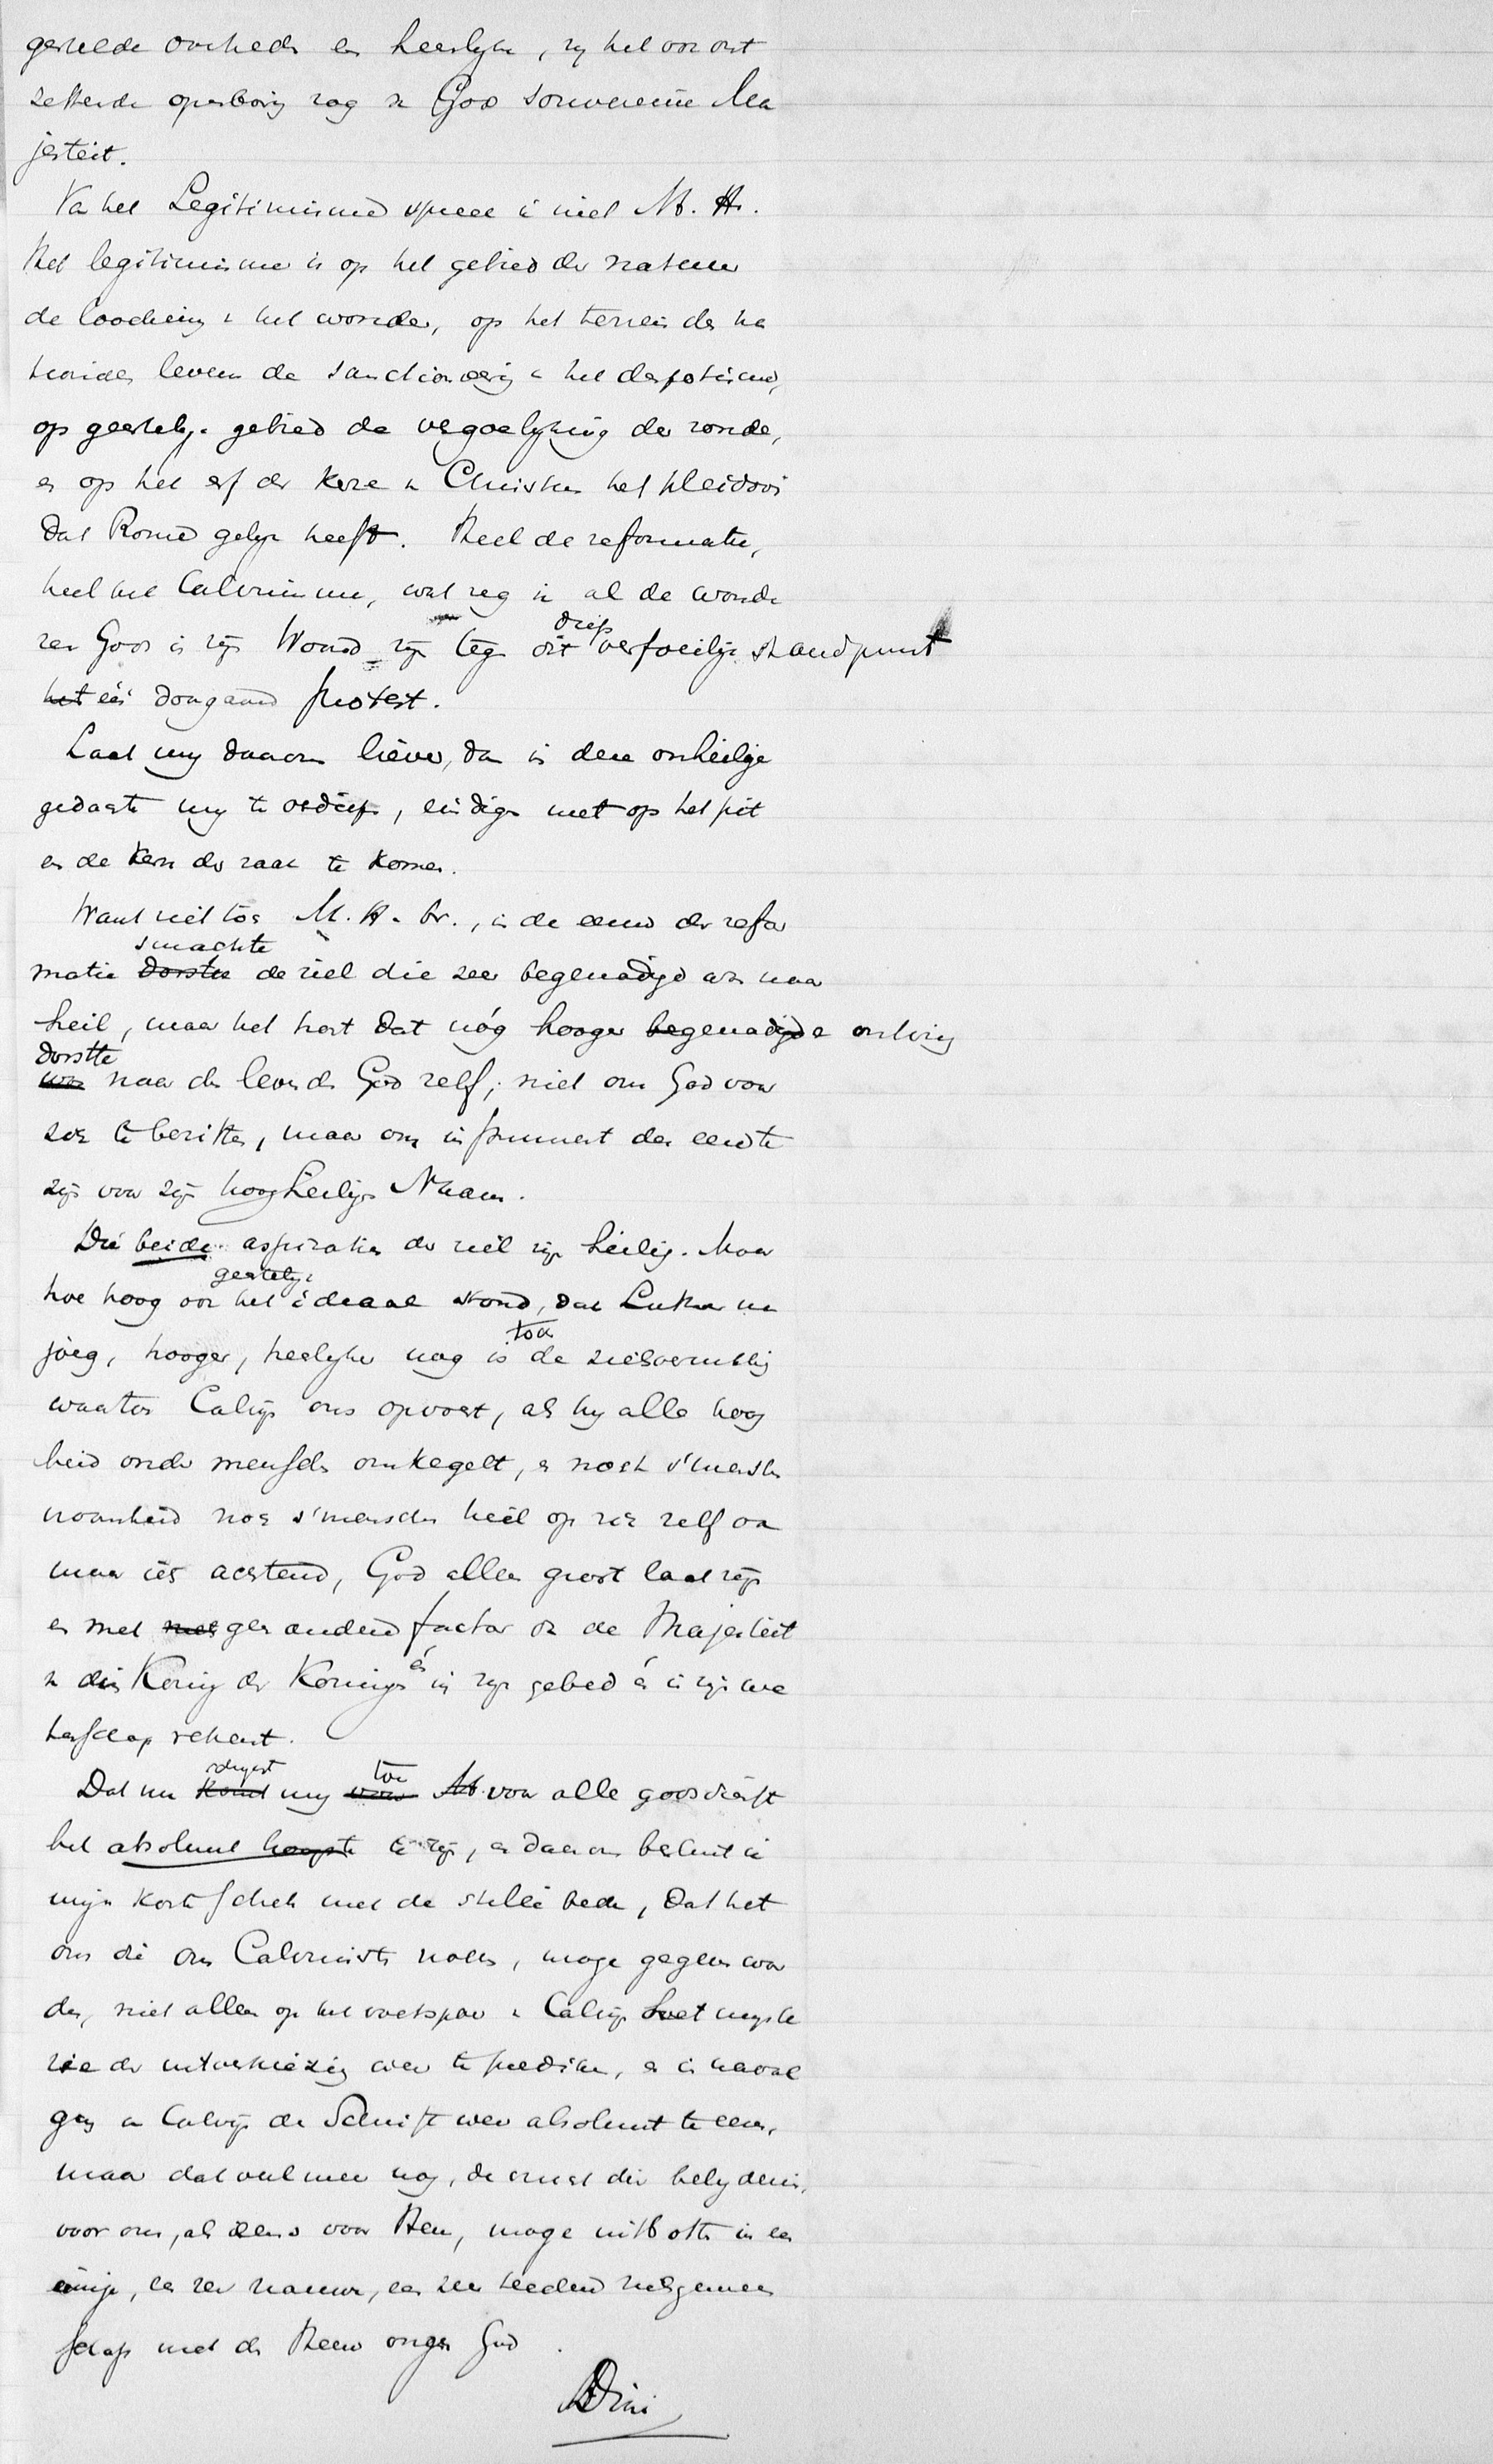 gestelde overheden en heerlyke, zy het ook ont
zettende openbaring zag v Gods souvereine Ma
jesteit.
Van het Legitimisme spreek ik niet M. H.
Het legitimisme is op het gebied der natuur
de loochening v het wonder, op het terrein des na
tionalen levens de sanctioneering v het despotisme,
op geestelijk gebied de vergoelyking der zonde,
en op het erf der Kerk v Christus het pleidooi
dat Rome gelijk heeft. Heel de reformatie,
heel het Calvinisme, wat zeg ik al de wonde
ren Gods in zijn Woord zijn tegen dit diep verfoeilijk standpunt
het één doorgaand protest.
Laat my daarom liever, dan in deze onheilige
gedachte my te verdiepen, eindigen met op het pit
en de Kern der zaak te komen.
Want niet toch M. H. br., in de eeuw der refor
smachte
matie dorstte de ziel die zeer begenadigd was naar
heil, maar het hart dat nóg hooger begenadigde ontving
dorstte
was naar den levenden God zelf; niet om God voor
zich te bezitten, maar om instrument der eere te
zijn voor zijn hoogheiligen Naam.
Die beide aspiratien der ziel zijn heilig. Maar
geestelijk
hoe hoog ook het ideaal stond, dat Luther na
toch
joeg, hooger, heerlyker nog is de zielsverrukking
waartoe Calvijn ons opvoert, als hy alle hoog
heid onder menschen omkegelt, en noch s'menschen
vroomheid noch s'menschen heil op zich zelf ook
maar iets achtend, God alleen groot laat zijn
en met geen anderen factor dan de Majesteit
v dien Koning der Koningen én in zijn gebed én in zijn we
tenschap rekent.
schynt toe
Dat nu komt my voor M. voor alle godsdienst
het absoluut hoogste te zijn, en daarom besluit ik
mijn korte schets met de stille bede, dat het
ons die ons Calvinisten noemen, moge gegeven wor
den, niet alleen op het voetspoor v Calvijn het myste
rie der uitverkiezing weer te prediken, en in navol
ging v Calvijn de Schrift weer absoluut te eeren,
maar dat veel meer nog, de ernst dier belydenis,
voor ons, als eens voor Hem, moge uitbotten in een
innige, een zeer nauwe, een zeer teedere zielsgemeen
schap met den Heere onzen God.